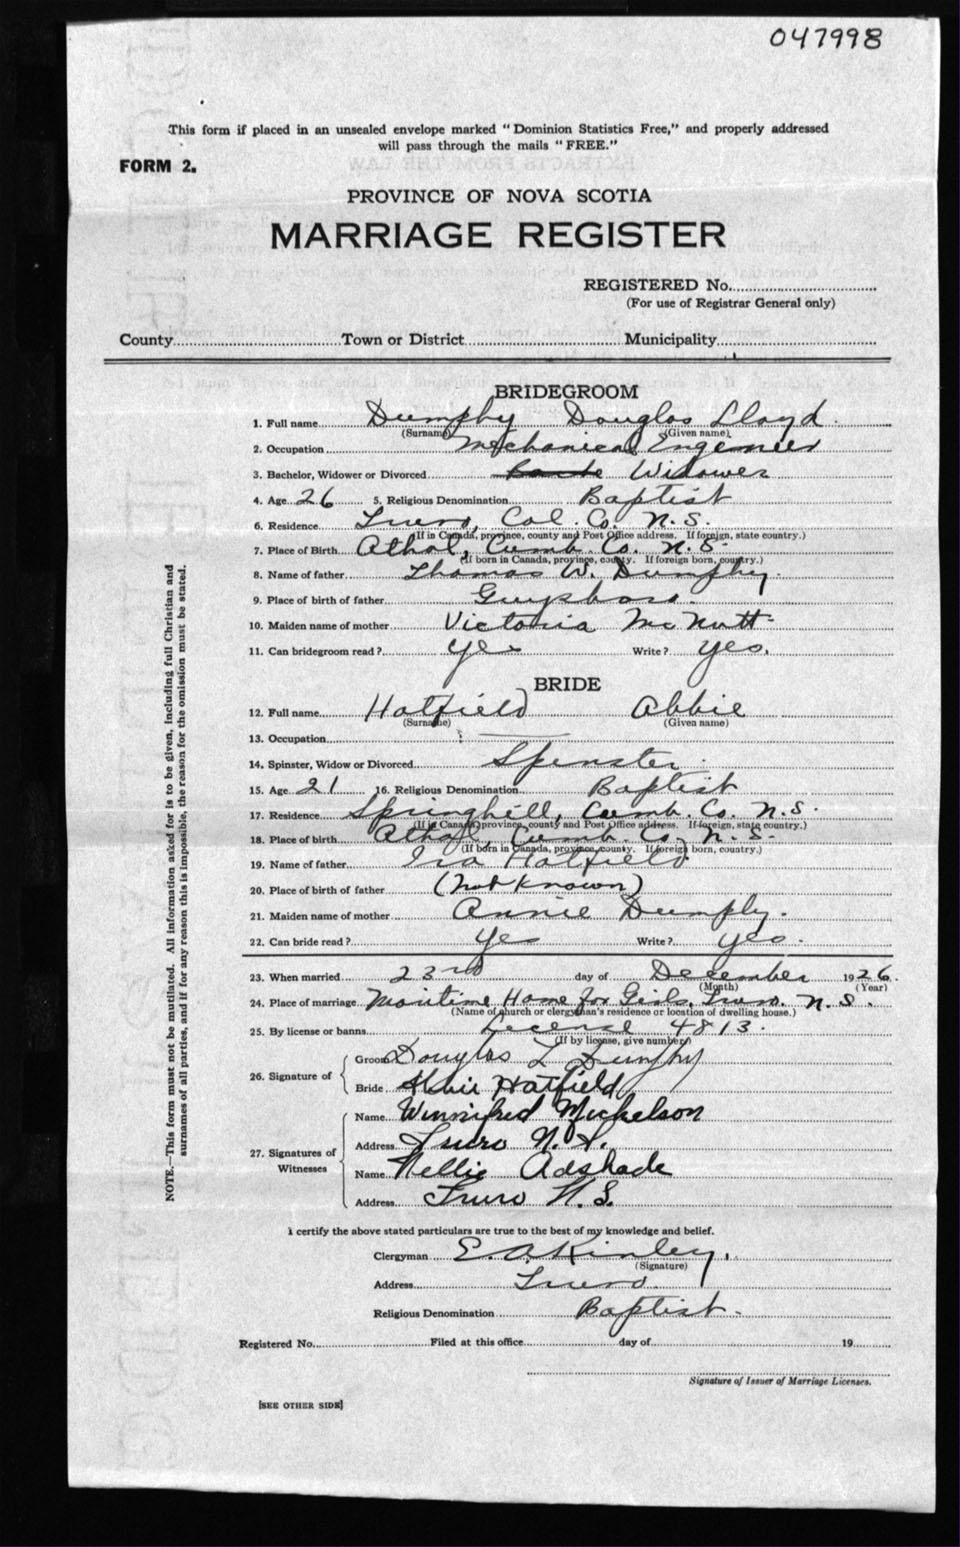 047998
This form if placed in an unsealed envelope marked "Dominion Statistics Free," and properly addressed
will pass through the mails "FREE."
FORM 2.
PROVINCE OF NOVA SCOTIA
MARRIAGE REGISTER
REGISTERED No.
(For use of Registrar General only)
County Town or District Municipality
BRIDEGROOM
1. Full name Dumphy Douglas Lloyd.
(Surname) (Given name)
2. Occupation Mechanical Engeneer
3. Bachelor, Widower or Divorced Widower
4. Age 26 5. Religious Denomination Baptist
6. Residence Truro, Col. Co. N.S.
(If in Canada, province, county and Post Office address. If foreign, state country.)
7. Place of Birth Athol, Cumb. Co. N.S.
(If born in Canada, province, county. If foreign born, country.)
8. Name of father Thomas W. Dumphy.
9. Place of birth of father
10. Maiden name of mother Victoria McNutt
11. Can bridegroom read? yes Write? yes.
BRIDE
12. Full name Hatfield Abbie
(Surname) (Given name)
13. Occupation
14. Spinster, Widow or Divorced Spenster.
15. Age 21 16. Religious Denomination Baptist
17. Residence Springhill, Cumb. Co. N.S.
(If in Canada, province, county and Post Office address. If foreign, state country.)
18. Place of birth Athol, Cumb. Co, N.S.
(If born in Canada, province, county. If foreign born, country.)
19. Name of father Ira Hatfield
20. Place of birth of father (not known)
21. Maiden name of mother Annie Dumphy.
22. Can bride read? yes Write? yes.
23. When married 23rd day of December 1926
(Month) (Year)
24. Place of marriage Maritime Home for Girls, Truro. N.S.
(Name of church or clergyman's residence or location of dwelling house.)
25. By license or banns License 4813.
(If by license, give number)
26. Signature of
Groom Douglas L Dumphy
Bride Abbie Hatfield
27. Signatures of Witnesses
Name Winnifred Mickelson
Address Truro N.S.
Name Nellie Adshade
Address Truro N.S.
I certify the above stated particulars are true to the best of my knowledge and belief.
Clergyman E. A. Kinley.
(Signature)
Address Truro
Religious Denomination Baptist.
Registered No. Filed at this office day of 19
Signature of Issuer of Marriage Licenses.
[SEE OTHER SIDE]
NOTE.—This form must not be mutilated. All information asked for is to be given, including full Christian and
surnames of all parties, and if for any reason this is impossible, the reason for the omission must be stated.